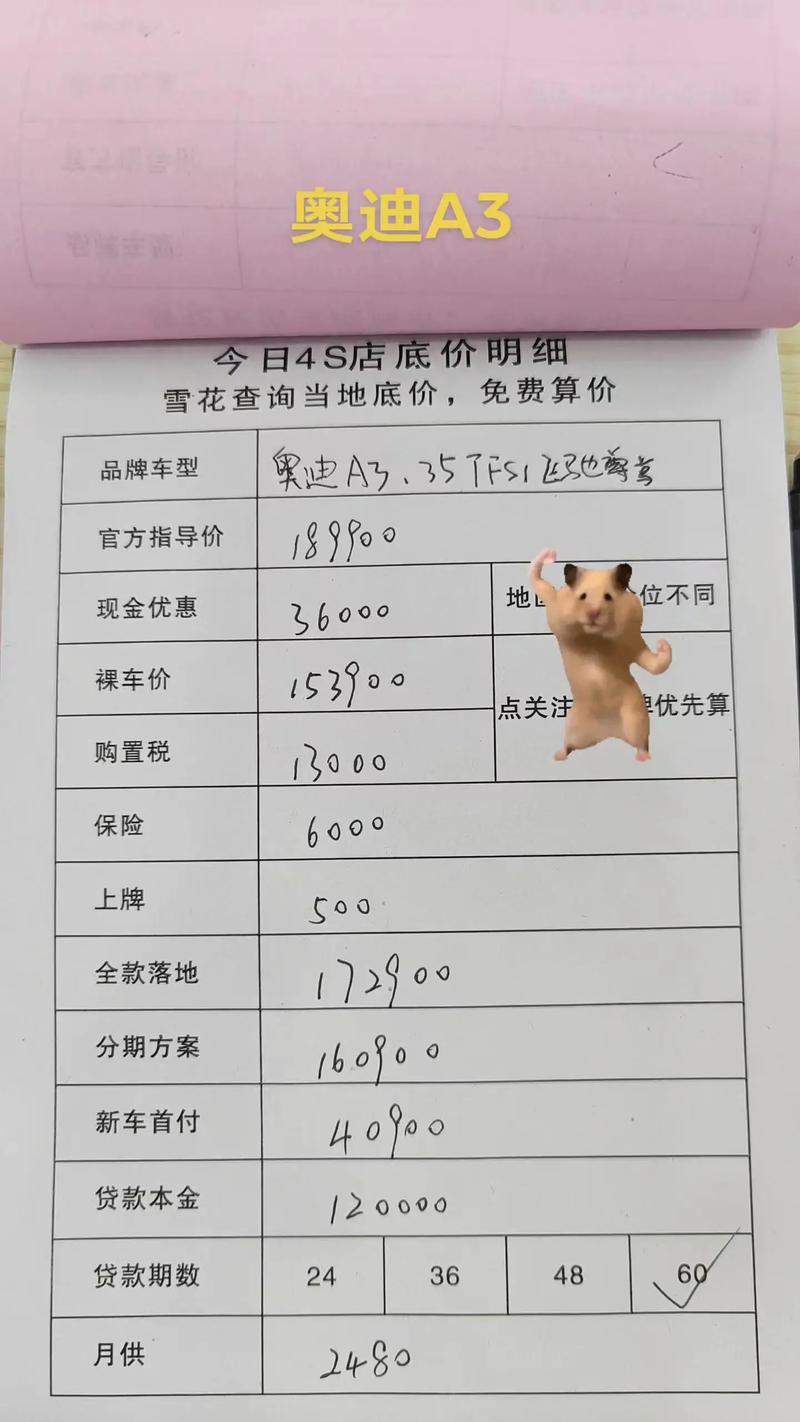 奥迪A3
今日4S店底价明细
雪花查询当地底价，免费算价
品牌车型 奥迪A3、35TFSI
官方指导价 189900
现金优惠 36000 地 位不同
裸车价 153900
点关注 优先算
购置税 13000
保险 6000
上牌 500
全款落地 172900
分期方案 160900
新车首付 40900
贷款本金 120000
贷款期数 24 36 48 60
月供 2480